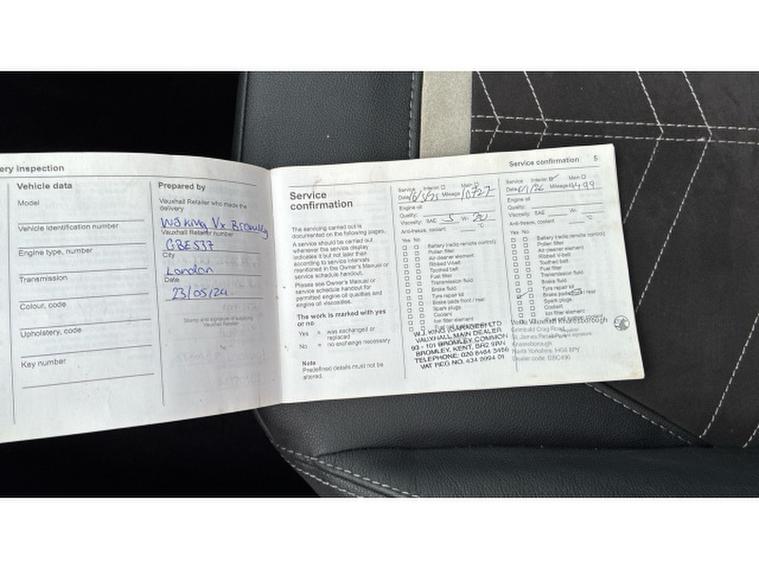 ery inspection
Vehicle data
Model
Vehicle Identification number
Engine type, number
Transmission
Colour, code
Upholstery, code
Key number
Prepared by
Vauxhall Retailer who made the
delivery
WJ KING Vx Bromley
Vauxhall Retailer number
GBE537
City
London
Date
23/05/24
Stamp and signature of supplying
Vauxhall Retailer
Service confirmation 5
Service
confirmation
The servicing carried out is
documented on the following pages.
A service should be carried out
whenever the service display
indicates it but not later than
according to service intervals
mentioned in the Owner's Manual or
service schedule handout.
Please see Owner's Manual or
service schedule handout for
permitted engine oil qualities and
engine oil viscosities.
The work is marked with yes
or no
Yes = was exchanged or
replaced
No = no exchange necessary
Note
Predefined details must not be
altered.
Service Interim Main
Date Mileage 10727
Engine oil
Quality:
Viscosity: SAE 5 W- 20
Anti-freeze, coolant °C
Yes No
Battery (radio remote control)
Pollen filter
Air cleaner element
Ribbed V-belt
Toothed belt
Fuel filter
Transmission fluid
Brake fluid
Tyre repair kit
Brake pads front / rear
Spark plugs
Coolant
Ion filter element
W.J. KING (GARAGES) LTD
VAUXHALL MAIN DEALER
93 - 101 BROMLEY COMMON
BROMLEY, KENT, BR2 9RN
TELEPHONE: 020 8464 3456
VAT REG NO. 434 5094 01
Service Interim Main
Date Mileage
Engine oil
Quality:
Viscosity: SAE W-
Anti-freeze, coolant °C
Yes No
Battery (radio remote control)
Pollen filter
Air cleaner element
Ribbed V-belt
Toothed belt
Fuel filter
Transmission fluid
Brake fluid
Tyre repair kit
Brake pads rear
Spark plugs
Coolant
Ion filter element
Vauxhall Knaresborough
Grimbald Crag Road
St James Retail Park
Knaresborough
North Yorkshire, HG5 8PY
Dealer code: